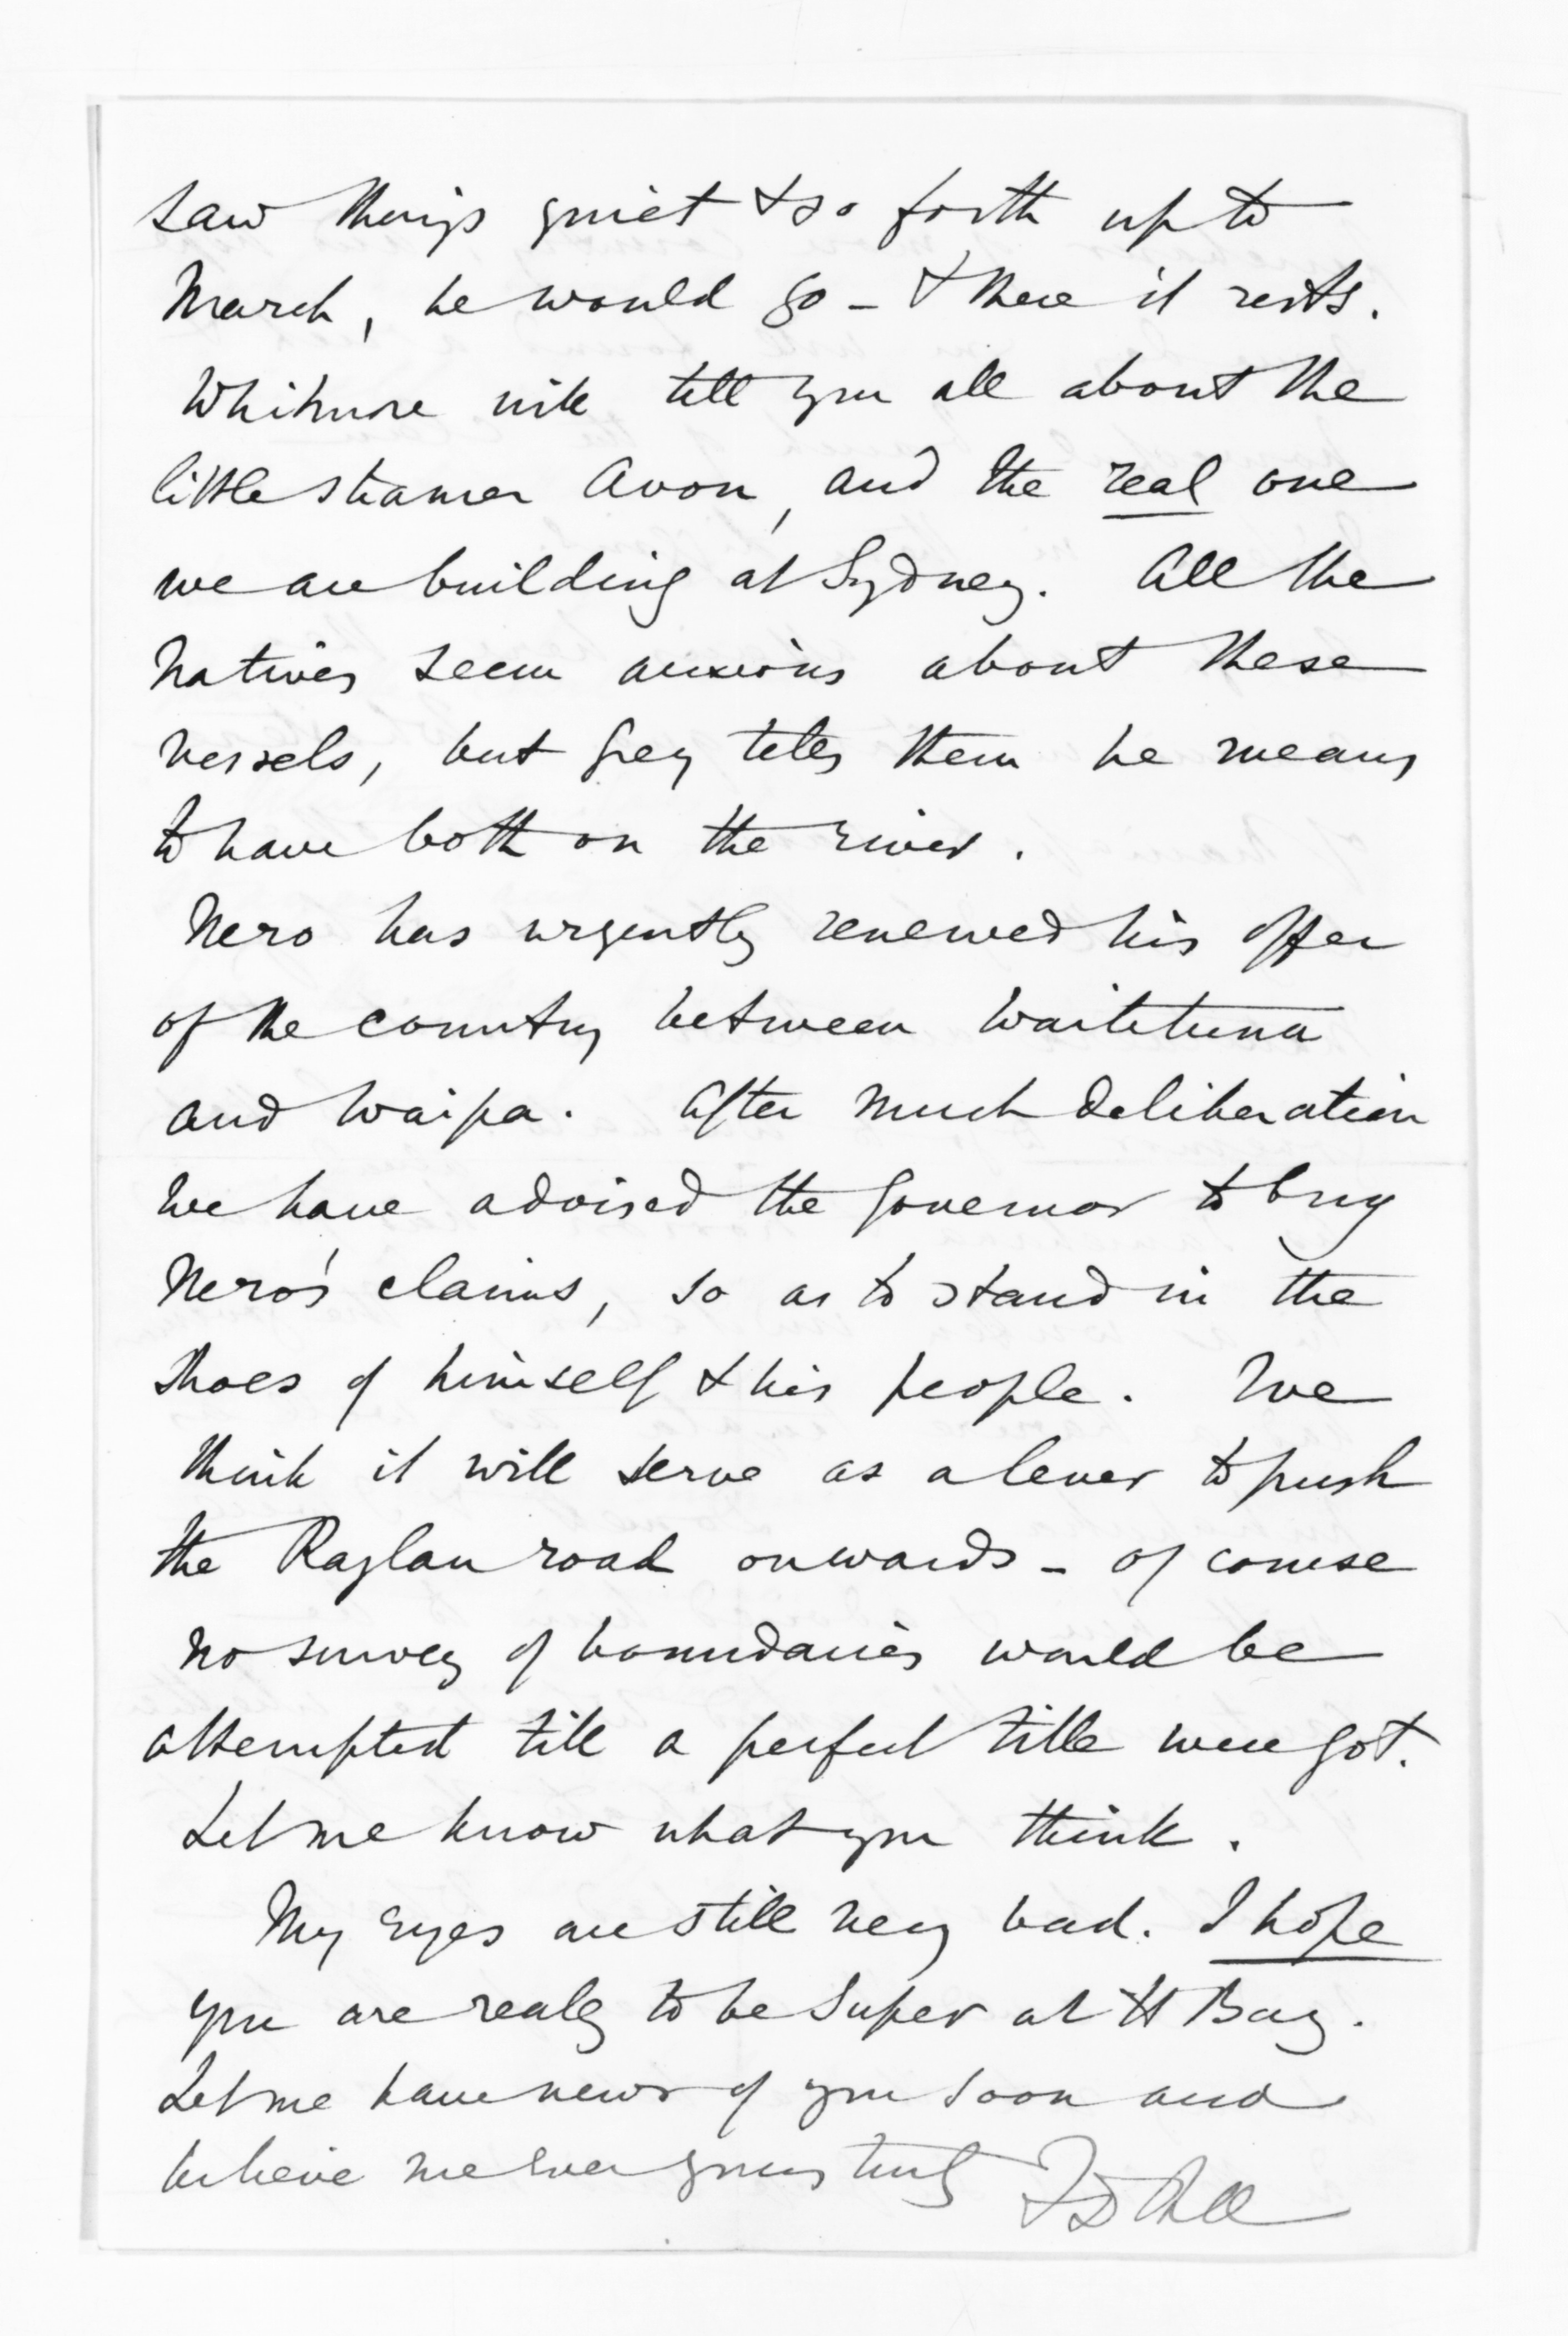 saw things quiet & so forth up to
March, he would go – & there it rests.
Whitmore will tell you all about the
little steamer Avon, and the real one
we are building at Sydney. All the
Natives seem anxious about these
vessels, but Grey tells them he means
to have both on the river.
Nero has urgently renewed his offer
of the country between Waitetuna
and Waipa. After much deliberation
we have advised the Governor to buy
Nero's claims, so as to stand in the
shoes of himself & his people. We
think it will serve as a lever to push
the Raglan road onwards – of course
no survey of boundaries would be
attempted till a perfect title were got.
Let me know what you think.
My eyes are still very bad. I hope
you are really to be Super at H Bay.
Let me have news of you soon and
believe me ever yours truly FD Bell